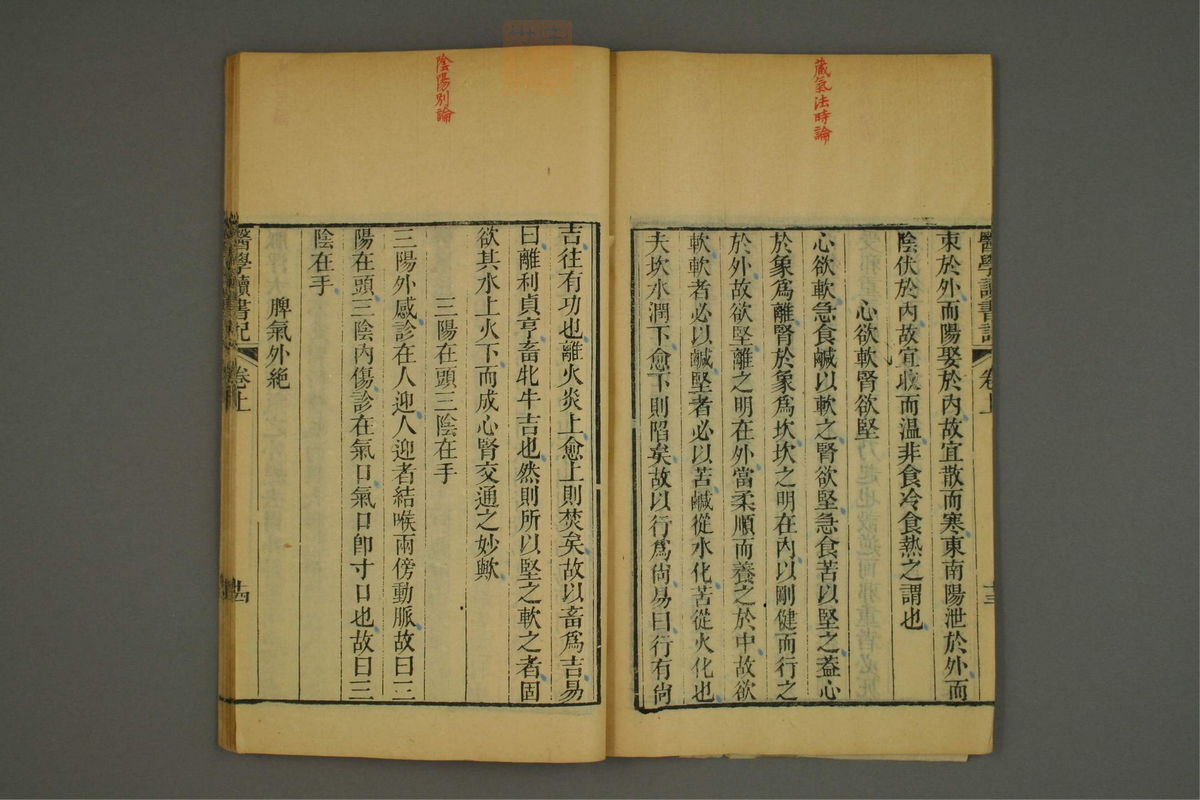 藏氣法時論
醫學讀書記 卷上 十三
束於外而陽聚於內故宜散而寒東南陽泄於外而
陰伏於內故宜收而温非食冷食熱之謂也
心欲軟腎欲堅
心欲軟急食鹹以軟之腎欲堅急食苦以堅之葢心
於象爲離腎於象爲坎坎之明在內以剛健而行之
於外故欲堅離之明在外當柔順而養之於中故欲
軟軟者必以鹹堅者必以苦鹹從水化苦從火化也
夫坎水潤下愈下則陷矣故以行爲尙易曰行有尙
陰陽別論
吉往有功也離火炎上愈上則焚矣故以畜爲吉易
曰離利貞亨畜牝牛吉也然則所以堅之軟之者固
欲其水上火下而成心腎交通之妙歟
三陽在頭三陰在手
三陽外感診在人迎人迎者結喉兩傍動脈故曰三
陽在頭三陰內傷診在氣口氣口卽寸口也故曰三
陰在手
脾氣外絶
醫學讀書記 卷上 十四